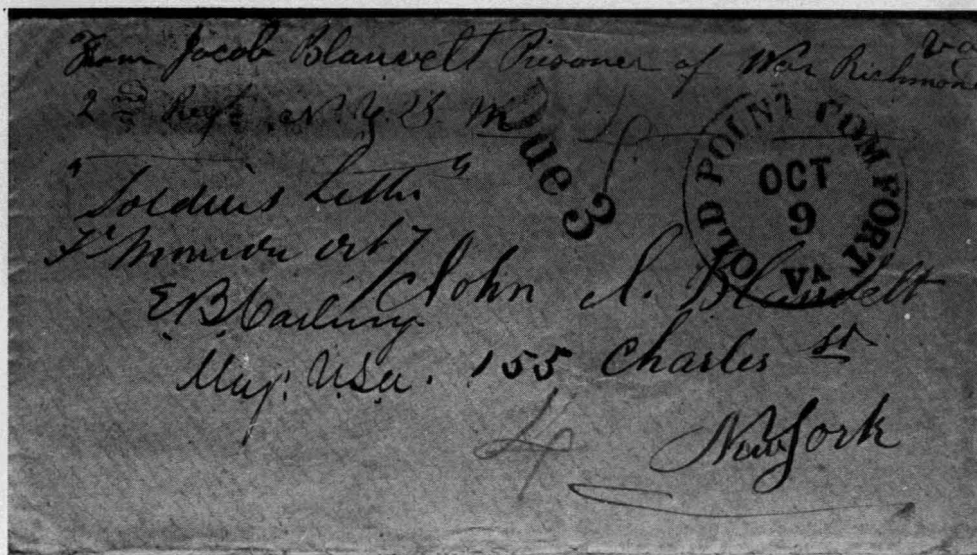 From Jacob Blauvelt Prisoner of War Richmond Va
2nd Regt. N.Y.S.M
Due 3
OLD POINT COMFORT
OCT
9
VA
"Soldiers Letter"
Ft Monroe Oct 7
E.B. 
Maj. U.S.A.
John I. Blauvelt
155 Charles St
New York
4